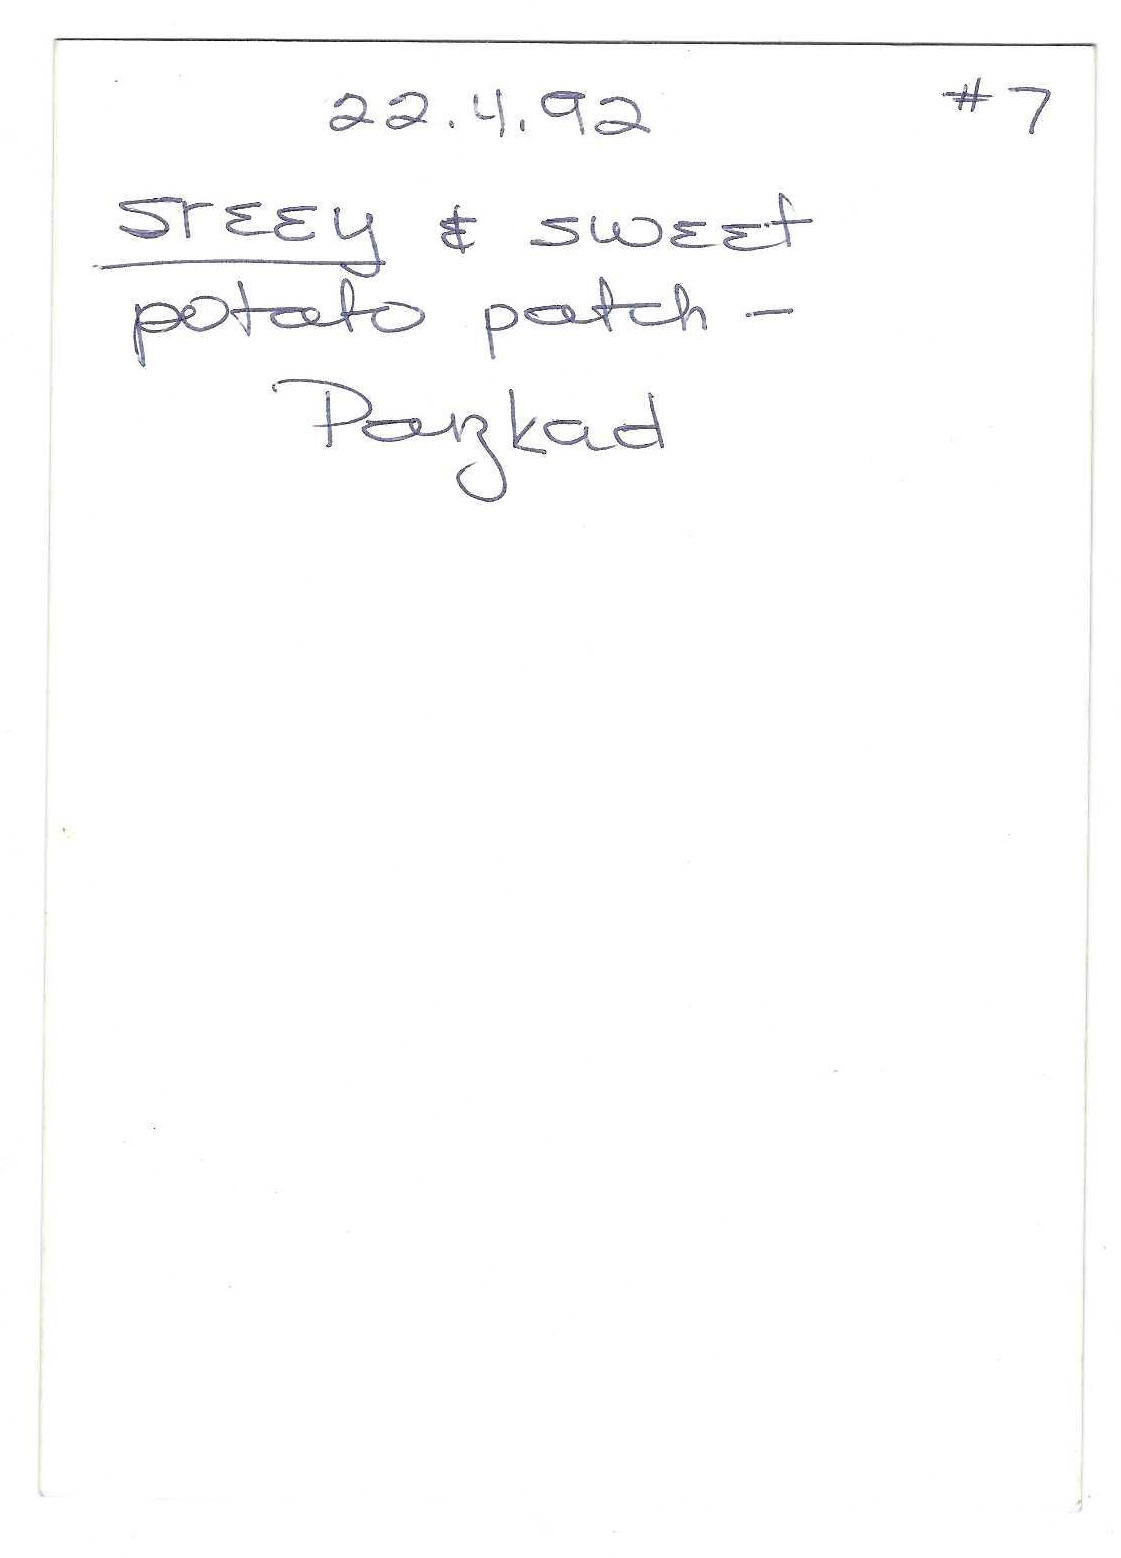 22.4.92 #7
STEEY & SWEET
potato patch -
Parzkad